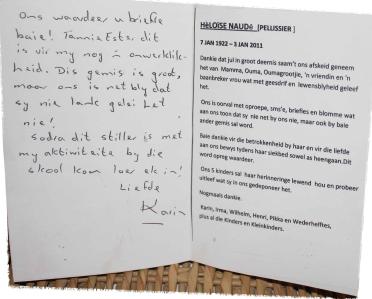 Ons waardeer u briefie
baie! Tannie Ester dit
is vir my nog 'n onwerklik-
heid. Die gemis is groot,
maar ons is net bly dat
sy nie lank gelei het
nie!
Sodra dit stiller is met
my aktiwiteite by die
skool kom loer ek in!
Liefde
Karin
HELOÏSE NAUDé [PELLISSIER]
7 JAN 1922 – 3 JAN 2011
Dankie dat jul in groot deernis saam't ons afskeid geneem
het van Mamma, Ouma, Oumagrootjie, 'n vriendin en 'n
baanbreker vrou wat met geesdrif en lewensblyheid geleef
het.
Ons is oorval met oproepe, sms'e, briefies en blomme wat
aan ons toon dat sy nie net by ons nie, maar ook by baie
ander gemis sal word.
Baie dankie vir die betrokkenheid by haar en vir die liefde
aan ons bewys tydens haar siekbed sowel as heengaan.Dit
word opreg waardeer.
Ons 5 kinders sal haar herinneringe lewend hou en probeer
uitleef wat sy in ons gedeponeer het.
Nogmaals dankie.
Karin, Irma, Wilhelm, Henri, Pikka en Wederhelftes,
plus al die Kinders en Kleinkinders.